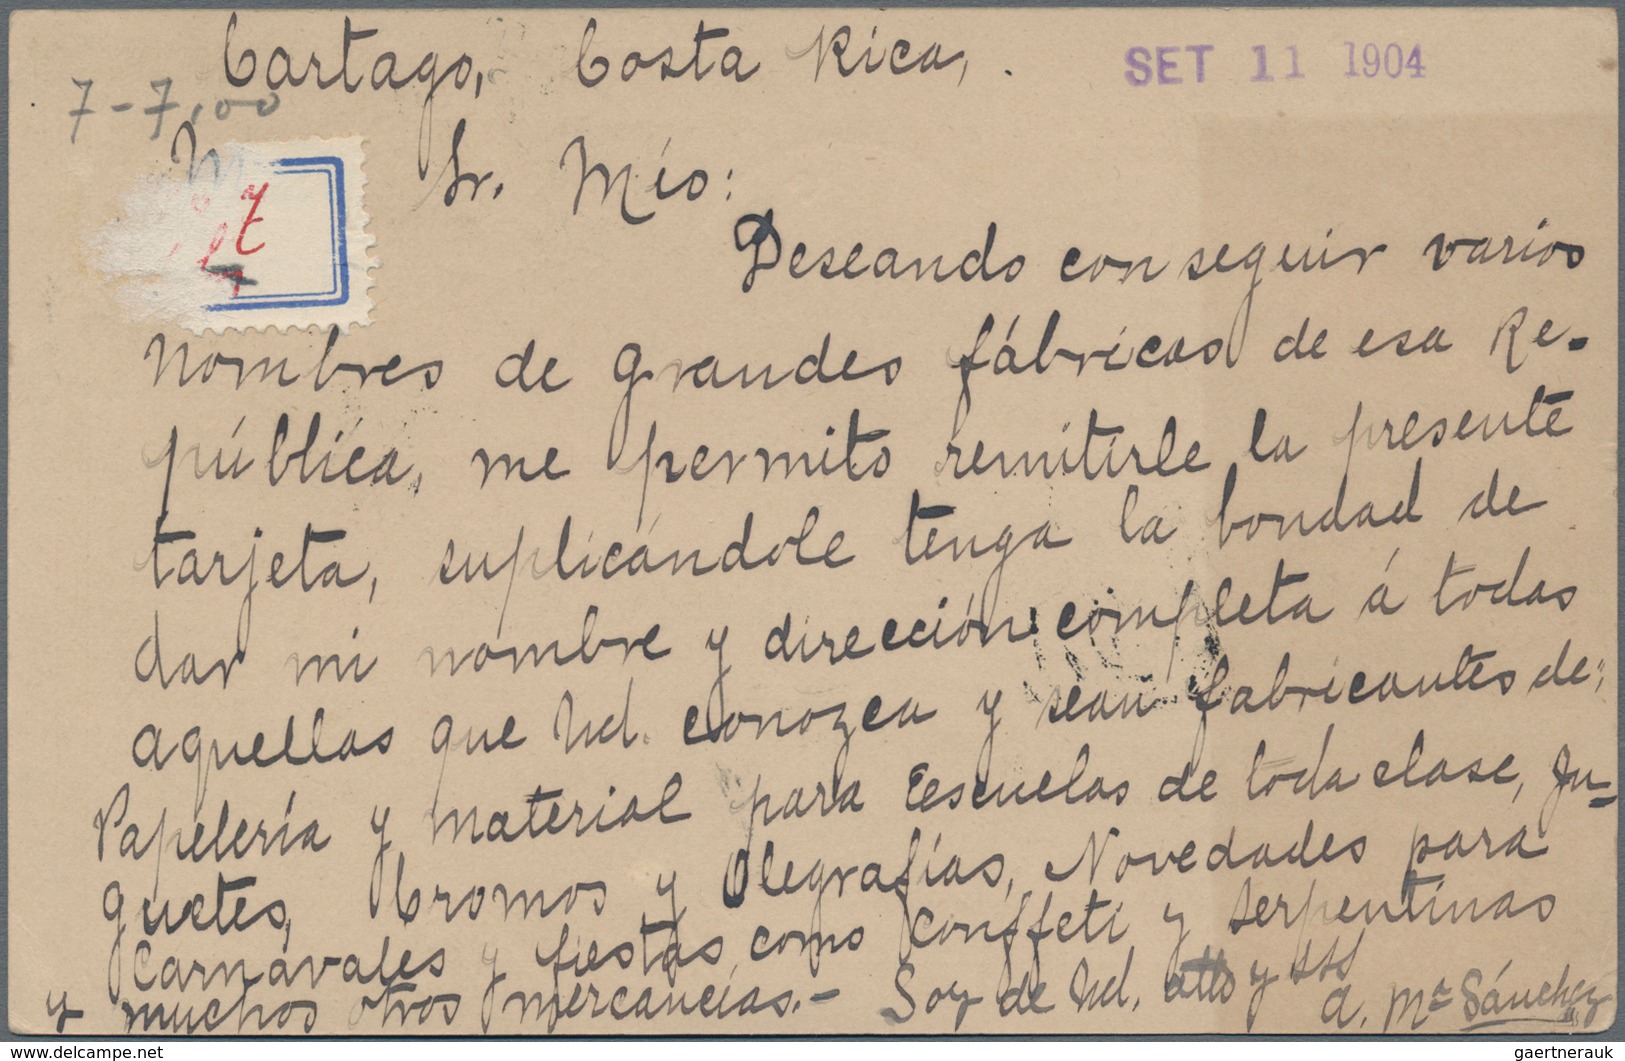 Cartago, Costa Rica, . SET 11 1904
7-7,00
Sr. Mío:
Deseando conseguir varios
nombres de grandes fábricas de esa Re-
pública, me permito remitirle la presente
tarjeta, suplicándole tenga la bondad de
dar mi nombre y dirección completa á todas
aquellas que Ud. conozca y sean fabricantes de:
Papelería y material para Escuelas de toda clase, Ju=
guetes, Cromos y Olegrafías, Novedades para
Carnavales y fiestas como Conffeti y serpentinas
y muchos otros mercancías.- Soy de Ud. atto y SSS
A. Mª Sánchez
www.delcampe.net
gaertnerauk